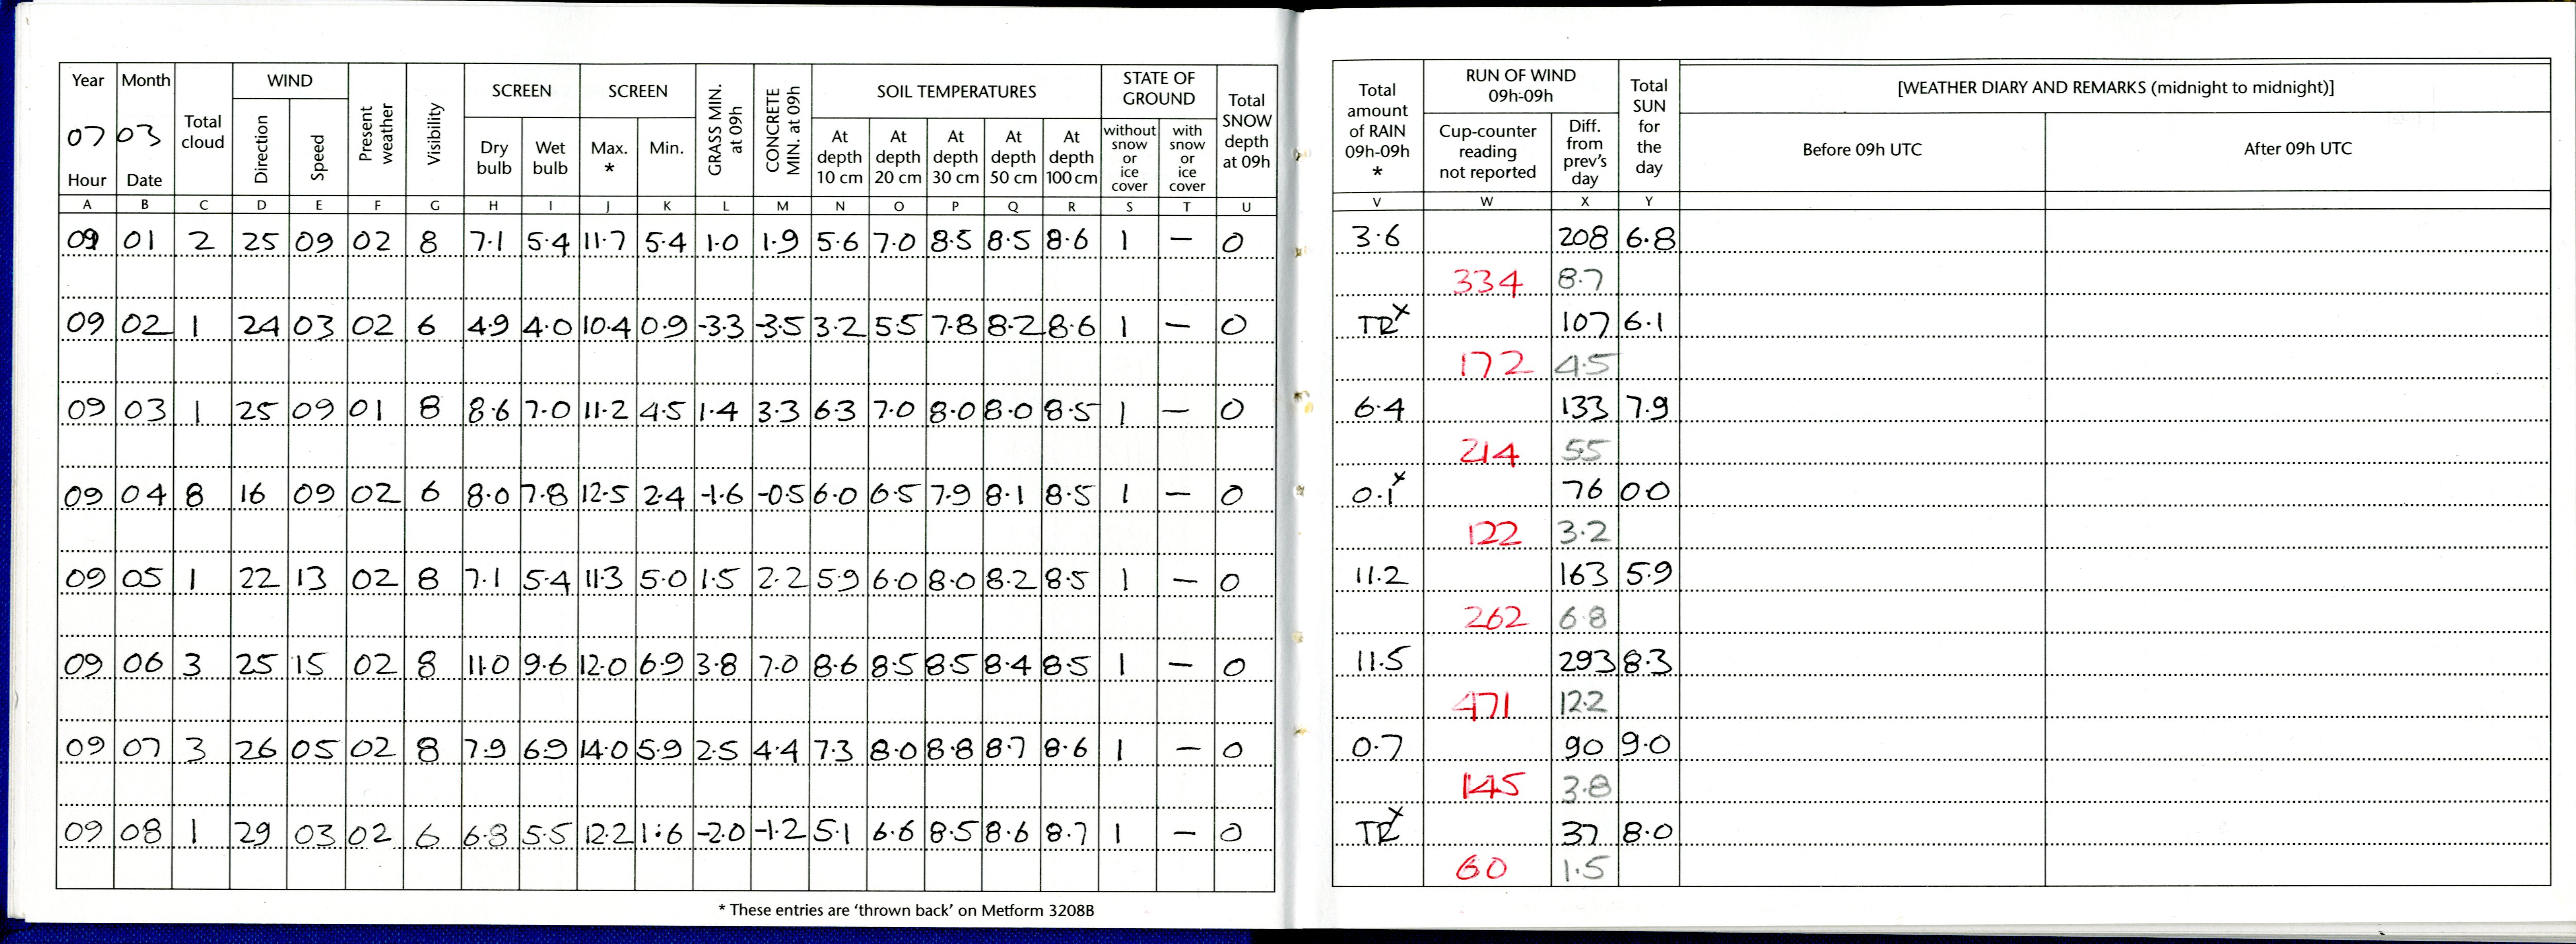 Year Month Total cloud WIND Present weather Visibility SCREEN SCREEN GRASS MIN. at 09h CONCRETE MIN. at 09h SOIL TEMPERATURES STATE OF GROUND Total SNOW depth at 09h
07 03 Direction Speed Dry bulb Wet bulb Max. * Min. At depth 10 cm At depth 20 cm At depth 30 cm At depth 50 cm At depth 100 cm without snow or ice cover with snow or ice cover
Hour Date
A B C D E F G H I J K L M N O P Q R S T U
09 01 2 25 09 02 8 7.1 5.4 11.7 5.4 1.0 1.9 5.6 7.0 8.5 8.5 8.6 1 — 0
09 02 1 24 03 02 6 4.9 4.0 10.4 0.9 -3.3 -3.5 3.2 5.5 7.8 8.2 8.6 1 — 0
09 03 1 25 09 01 8 8.6 7.0 11.2 4.5 1.4 3.3 6.3 7.0 8.0 8.0 8.5 1 — 0
09 04 8 16 09 02 6 8.0 7.8 12.5 2.4 -1.6 -0.5 6.0 6.5 7.9 8.1 8.5 1 — 0
09 05 1 22 13 02 8 7.1 5.4 11.3 5.0 1.5 2.2 5.9 6.0 8.0 8.2 8.5 1 — 0
09 06 3 25 15 02 8 11.0 9.6 12.0 6.9 3.8 7.0 8.6 8.5 8.5 8.4 8.5 1 — 0
09 07 3 26 05 02 8 7.9 6.9 14.0 5.9 2.5 4.4 7.3 8.0 8.8 8.7 8.6 1 — 0
09 08 1 29 03 02 6 6.8 5.5 12.2 1.6 -2.0 -1.2 5.1 6.6 8.5 8.6 8.7 1 — 0
* These entries are ‘thrown back’ on Metform 3208B
Total amount of RAIN 09h-09h * RUN OF WIND 09h-09h Total SUN for the day [WEATHER DIARY AND REMARKS (midnight to midnight)]
Cup-counter reading not reported Diff. from prev's day Before 09h UTC After 09h UTC
V W X Y
3.6 208 6.8
334 8.7
TR x 107 6.1
172 4.5
6.4 133 7.9
214 5.5
0.1 x 76 00
122 3.2
11.2 163 5.9
262 6.8
11.5 293 8.3
471 12.2
0.7 90 9.0
145 3.8
TR x 37 8.0
60 1.5